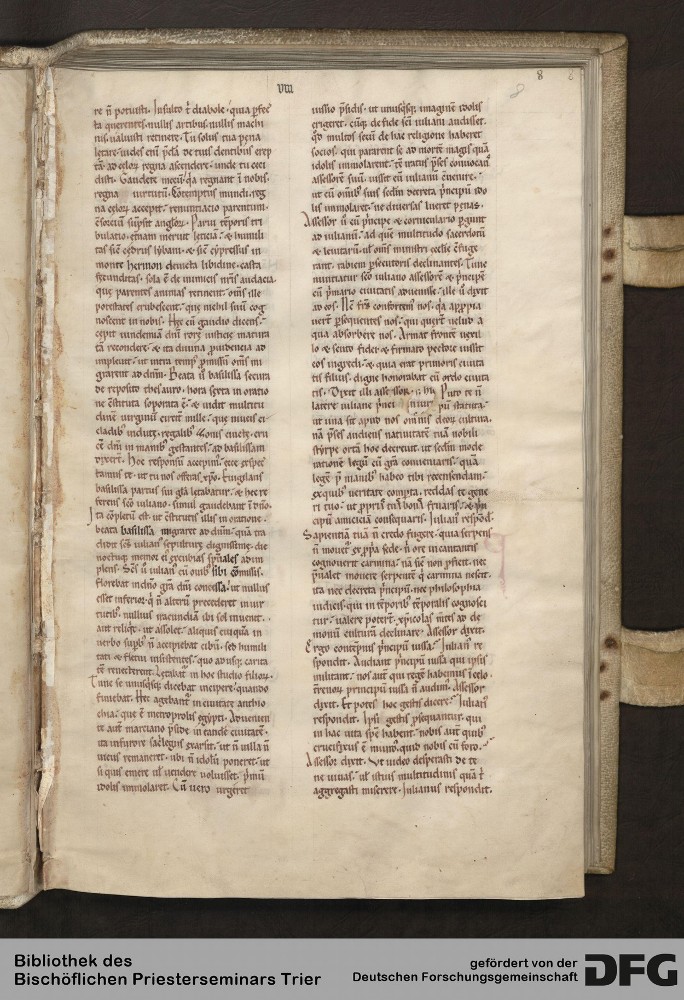 VIII
8
8
re n̄ potuisti. Insulto t̄ diabole. quia p̄fec
ta querentes. nullis artibus. nullis machi
nis ualuisti retinere. Tu solus tua pena
letare. uides eni
ad celoꝝ regna ascendere. unde tu ceci
disti. Gaudete mecū. q̄a regnant ī nobis.
regna uirtutū. Cōtemptus mundi. reg
na celoꝝ accepit. renunciatio parentum.
cōsorciū sūpsit angloꝝ. Paruū tēporis tri
bulatio. et̄nam meruit leticiā. & humili
tas sic̄ cedrus lybani. & sic̄ cypressus in
monte hermon deuicta libidine. casta
fecunditas. sola ē de inimicis nr̄is audacia.
que parentes animas retinent. om̄s ille
potestates erubescent. que nichil suū cog
noscent in nobis. Hec cū gaudio dicens.
cepit uindemiā dn̄i
tā recondere. & ita diuina puidencia ad
impleuit. ut intra temp̄ pmissū om̄s mi
grarent ad dn̄m. Beata ū basilissa secura
de reposito thesauro. hora sexta in oratio
ne cōstituta soporata ē. & uidit multitu
dinē uirginū circit̄ mille. que niueis ci
cladib; indute. regalib; zonis cincte. cru
cē dn̄i in manib; gestantes. ad basilissam
dixer̄t. Hoc responsū accepim̄. ecce exspec
tamus te. ut tu nos offeras xp̄o. Euigilans
basilissa partus sui gl̄a letabatur. & hec re
ferens sc̄o iuliano. simul gaudebant ī dn̄o.
Ita cōpletū est. ut cōstitutis illis in oratione.
beata basilissa migraret ad dn̄m. quā tra
didit sc̄s iulian̄ sepulture dignissime. die
noctuq; memor ei excubias sp̄uales adim
plens. Sc̄s ū iulian̄ cū omib; sibi cōmissis.
florebat in dn̄o gr̄a dn̄i concessa. ut nullus
esset inferior. q̄ n̄ alterū precederet in uir
tutib;. nullius iracundiā ibi sol inuenit.
aut reliq̄t. ut assolet. aliquis cuiquā in
uerbo sup̄b; n̄ accipiebat cibū. sed humili
tati & fletui insistentes. quo adusq; carita
tē reuocarent. Letabat̄ in hoc studio filioꝝ.
Tunc se unusq̄sq; dicebat incipere. quando
finiebat. Hec agebant̄ in ciuitate anthio
chia. que ē metropolis egypti. Aduenien
te aut̄ marciano p̄side in eandē ciuitatē.
ita infurore sac̄legus exarsit. ut n̄ uilla n̄
uicus remaneret. ubi n̄ idolū poneret. ut
si quis emere ul̄ uendere uoluisset. p̄mū
idolis immolaret. Cū uero urgeret
iussio p̄sidis. ut unusq̄sq; imaginē idolis
erigeret. cūq; de fide sc̄i iuliani audisset.
qd̄ multos secū de hac religione haberet
socios. qui parati se ad mortē magis quā
idolis immolarent. tc̄ iratus p̄ses conuocari
assessorē suū. iussit cū iulianū cuenire.
ut cū omib; suis sedm̄ decreta p̄ncipū ido
lis immolaret. ne diuersas lueret penas.
Assessor ū cū p̄ncipe & corniculario p̄gunt
ad iulianū. ad quē multitudo sacerdotū
& leuitarū. ul̄ om̄s ministri ecclie cōfuge
rant. rabiem p̄secutoris declinantes. Tunc
nuntiatur sc̄o iuliano assessorē & p̄ncipē
cū p̄mario ciuitatis aduenisse. ille ū dixit
ad eos. Nc̄ fr̄s confortemī nos. q̄a appia
uer̄t p̄sequentes nos. qui quer̄t uelud a
qua absorbere nos. Armat̄ frontē uexil
lo & scuto fidei. & firmato pectore iussit
eos ingredi. & quia erat primoris ciuita
tis filius. digne honorabat̄ cū ordo ciuita
tis. Dixit illi assessor. Puto te n̄
latere iuliane p̄nci statuta.
ut una sit apud nos om̄nis deoꝝ cultura.
nā p̄ses audiens natiuitatē tuā nobili
styrpe ortā hoc decreuit. ut sedm̄ mode
rationē legū cū gr̄a conueniaris. quā
legē p̄ manib; habeo tibi recensendam.
ex quib; ueritate compta. reddas te gene
ri tuo. ut pp̄riū erū bonū fruaris. & p̄n
cipū amiciciā consequaris. Julian̄ respōd.
Sapientiā tuā n̄ credo fugere. quia serpens
n̄ mouet̄ ex pp̄a sede. n̄ ore incantantis
cognouerit carmina. nā sic̄ non pficit. nec
p̄ualet mouere serpentē q̄ carmina nescit.
ita nec decreta p̄ncipū. nec philosophia
iudicis. qui in tēporib; tēporalis cognosci
tur. ualere poter̄t. xp̄icolas m̄tes ad de
moniū culturā declinare. Assessor dixit.
Ergo contēpnis p̄ncipū iussa. Julian̄ re
spondit. Audiant p̄ncipū iussa qui ipsis
militant. nos aut̄ qui regē habemus ī celo.
t̄renoꝝ principū iussa n̄ audim̄. Assessor
dixit. Et potes hoc gestis dicere. Julian̄
respondit. Ipsi gestis p̄sequantur. qui
in hac uita spē habent. nobis aut̄ quib;
crucifixus ē mund;. quid nobis cū foro.
Assessor dixit. Vt uideo desperasti de te
ne uiuas. ul̄ istius multitudinis quā t̄
aggregasti miserere. Julianus respondit.
Bibliothek des
Bischöflichen Priesterseminars Trier
gefördert von der
Deutschen Forschungsgemeinschaft
DFG